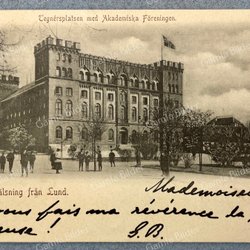 Tegnérsplatsen med Akademiska Föreningen.
älsning från Lund.
Mademoise
vous fais ma révérence la
euse! G.B.